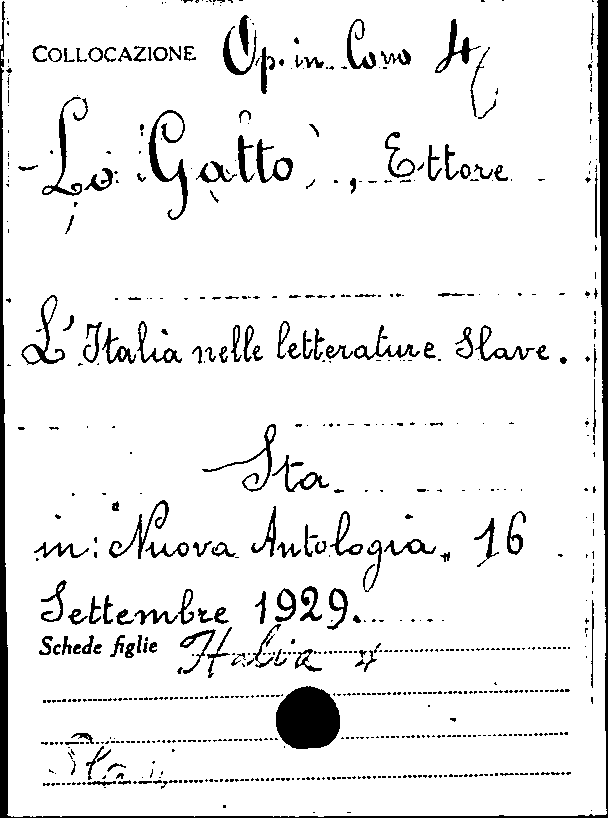 COLLOCAZIONE Op. in Cono 4
Lo Gatto, Ettore
L'Italia nelle letterature Slave.
Sta
in: "Nuova Antologia" 16
Settembre 1929.
Schede figlie Italia 4